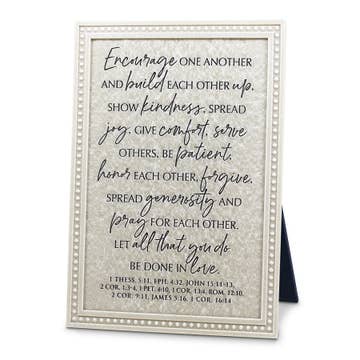 Encourage ONE ANOTHER
AND build EACH OTHER up,
SHOW kindness, SPREAD
joy, GIVE comfort, serve
OTHERS, BE patient,
honor EACH OTHER, forgive,
SPREAD generosity AND
pray FOR EACH OTHER.
LET all that you do
BE DONE IN love.
1 THESS. 5:11, EPH. 4:32, JOHN 15:11-13,
2 COR. 1:3-4, 1 PET. 4:10, 1 COR. 13:4, ROM. 12:10,
2 COR. 9:11, JAMES 5:16, 1 COR. 16:14